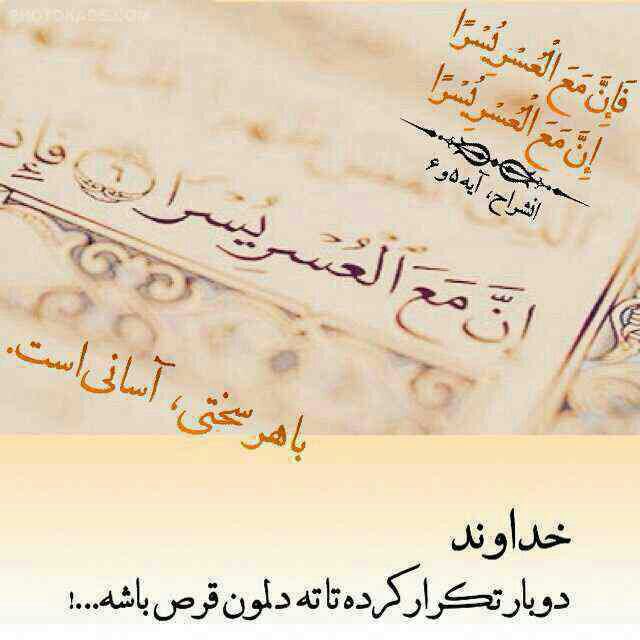 PHOTOKADE.COM
فَإِنَّ مَعَ الْعُسْرِ يُسْرًا
إِنَّ مَعَ الْعُسْرِ يُسْرًا
انشراح، آیه ۵و۶
إِنَّ مَعَ الْعُسْرِ يُسْرًا ٦
با هر سختی، آسانی است.
خداوند
دوبار تکرار کرده تا ته دلمون قرص باشه...!